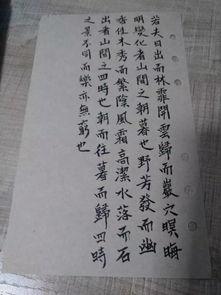 若夫日出而林霏開雲歸而巖穴暝晦
明變化者山間之朝暮也野芳發而幽
香佳木秀而繁陰風霜高潔水落而石
出者山間之四時也朝而往暮而歸四時
之景不同而樂亦無窮也